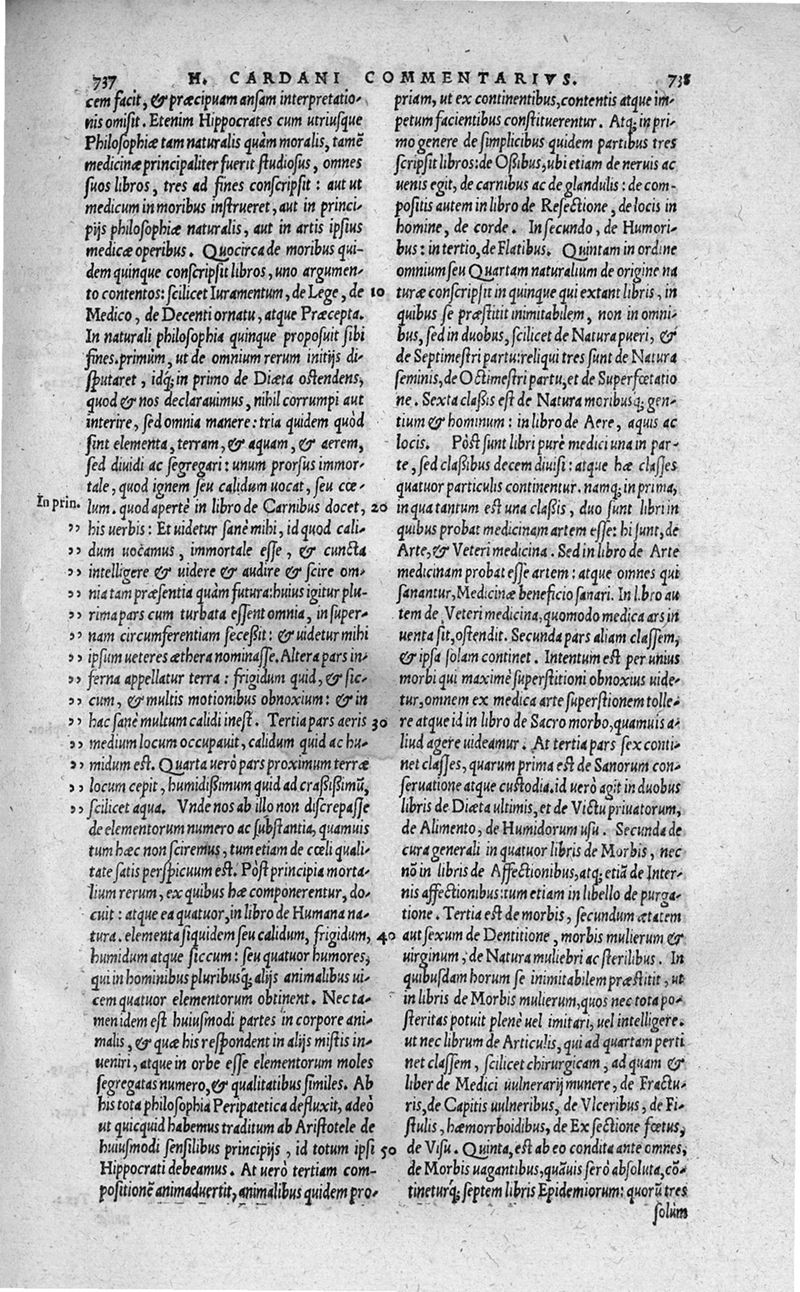 737 H. CARDANI COMMENTARIVS. 738
cem facit, & præcipuam ansam interpretatio-
nis omisit. Etenim Hippocrates cum utriusque
Philosophiæ tam naturalis quàm moralis, tamē
medicinæ principaliter fuerit studiosus, omnes
suos libros, tres ad fines conscripsit: aut ut
medicum in moribus instrueret, aut in princi-
pijs philosophiæ naturalis, aut in artis ipsius
medicæ operibus. Quocirca de moribus qui-
dem quinque conscripsit libros, uno argumen-
to contentos: scilicet Iuramentum, de Lege, de
Medico, de Decenti ornatu, atque Præcepta.
In naturali philosophia quinque proposuit sibi
fines. primùm, ut de omnium rerum initijs di-
sputaret, idq; in primo de Diæta ostendens,
quod & nos declarauimus, nihil corrumpi aut
interire, sed omnia manere: tria quidem quòd
sint elementa, terram, & aquam, & aerem,
sed diuidi ac segregari: unum prorsus immor-
tale, quod ignem seu calidum uocat, seu cœ-
In prin. lum. quod apertè in libro de Carnibus docet,
,, his uerbis: Et uidetur sanè mihi, id quod cali-
,, dum uocamus, immortale esse, & cuncta
,, intelligere & uidere & audire & scire om-
,, nia tam præsentia quàm futura: huius igitur plu-
,, rima pars cum turbata essent omnia, in super-
,, nam circumferentiam secessit: & uidetur mihi
,, ipsum ueteres æthera nominasse. Altera pars in-
,, ferna appellatur terra: frigidum quid, & sic-
,, cum, & multis motionibus obnoxium: & in
,, hac sanè multum calidi inest. Tertia pars aeris
,, medium locum occupauit, calidum quid ac hu-
,, midum est. Quarta uerò pars proximum terræ
,, locum cepit, humidissimum quid ad crassissimū,
,, scilicet aqua. Vnde nos ab illo non discrepasse
de elementorum numero ac substantia, quamuis
tum hæc non sciremus, tum etiam de cœli quali-
tate satis perspicuum est. Pòst principia morta-
lium rerum, ex quibus hæ componerentur, do-
cuit: atque ea quatuor, in libro de Humana na-
tura. elementa siquidem seu calidum, frigidum,
humidum atque siccum: seu quatuor humores,
qui in hominibus pluribusq; alijs animalibus ui-
cem quatuor elementorum obtinent. Nec ta-
men idem est huiusmodi partes in corpore ani-
malis, & quæ his respondent in alijs mistis in-
ueniri, atque in orbe esse elementorum moles
segregatas numero, & qualitatibus similes. Ab
his tota philosophia Peripatetica defluxit, adeò
ut quicquid habemus traditum ab Aristotele de
huiusmodi sensilibus principijs, id totum ipsi
Hippocrati debeamus. At uerò tertiam com-
positionē animaduertit, animalibus quidem pro-
priam, ut ex continentibus, contentis atque im-
petum facientibus constituerentur. Atq; in pri-
mo genere de simplicibus quidem partibus tres
scripsit libros: de Ossibus, ubi etiam de neruis ac
uenis egit, de carnibus ac de glandulis: de com-
positis autem in libro de Resectione, de locis in
homine, de corde. In secundo, de Humori-
bus: in tertio, de Flatibus. Quintam in ordine
omnium seu Quartam naturalium de origine na
10 turæ conscripsit in quinque qui extant libris, in
quibus se præstitit inimitabilem, non in omni-
bus, sed in duobus, scilicet de Natura pueri, &
de Septimestri partu: reliqui tres sunt de Natura
seminis, de Octimestri partu, et de Superfœtatio
ne. Sexta classis est de Natura moribusq; gen-
tium & hominum: in libro de Aere, aquis ac
locis. Pòst sunt libri purè medici una in par-
te, sed classibus decem diuisi: atque hæ classes
quatuor particulis continentur. namq; in prima,
20 in qua tantum est una classis, duo sunt libri in
quibus probat medicinam artem esse: hi sunt, de
Arte, & Veteri medicina. Sed in libro de Arte
medicinam probat esse artem: atque omnes qui
sanantur, Medicinæ beneficio sanari. In libro au
tem de Veteri medicina, quomodo medica ars in
uenta sit, ostendit. Secunda pars aliam classem,
& ipsa solam continet. Intentum est per unius
morbi qui maximè superstitioni obnoxius uide-
tur, omnem ex medica arte superstionem tolle-
30 re atque id in libro de Sacro morbo, quamuis a-
liud agere uideamur. At tertia pars sex conti-
net classes, quarum prima est de Sanorum con-
seruatione atque custodia. id uerò agit in duobus
libris de Diæta ultimis, et de Victu priuatorum,
de Alimento, de Humidorum usu. Secunda de
cura generali in quatuor libris de Morbis, nec
nō in libris de Affectionibus, atq; etiā de Inter-
nis affectionibus: tum etiam in libello de purga-
tione. Tertia est de morbis, secundum ætatem
40 aut sexum de Dentitione, morbis mulierum &
uirginum, de Natura muliebri ac sterilibus. In
quibusdam horum se inimitabilem præstitit, ut
in libris de Morbis mulierum, quos nec tota po-
steritas potuit plenè uel imitari, uel intelligere.
ut nec librum de Articulis, qui ad quartam perti
net classem, scilicet chirurgicam, ad quam &
liber de Medici uulnerarij munere, de Fractu-
ris, de Capitis uulneribus, de Vlceribus, de Fi-
stulis, hæmorrhoidibus, de Exsectione fœtus,
50 de Visu. Quinta, est ab eo condita ante omnes,
de Morbis uagantibus, quāuis serò absoluta, cō-
tineturq; septem libris Epidemiorum: quorū tres
solùm